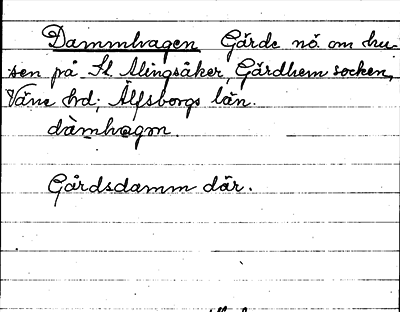 Dammhagen Gärde nö. om hu-
sen på St. Alingsåker, Gärdhem socken,
Väne hd; Älfsborgs län.
dàmhagen.
Gårdsdamm där.